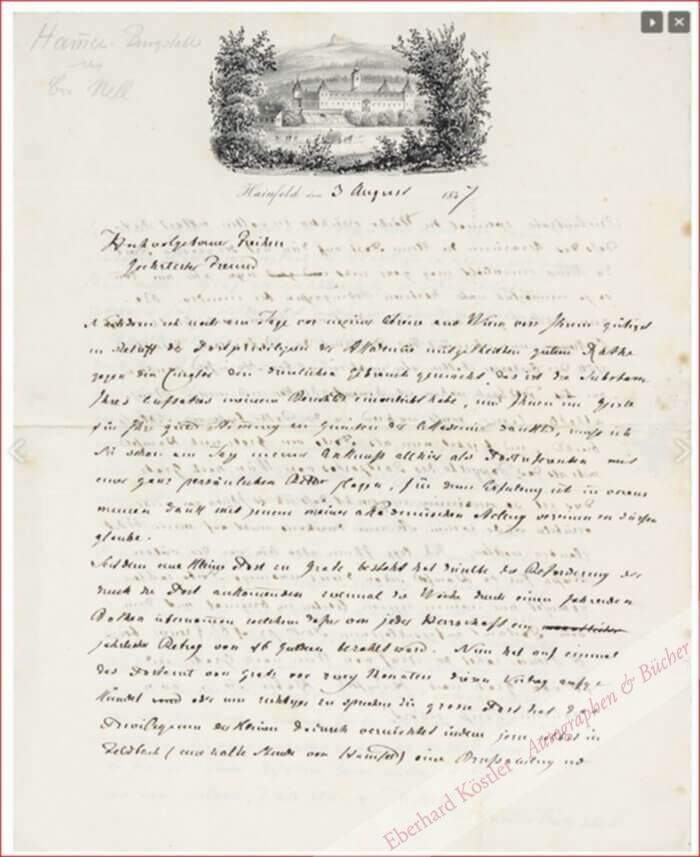 Hammer-Purgstall
Nell
Hainfeld den 3 August 1847
Hochwolgeborner Freiherr
Hochverehrter Freund
Nachdem ich noch am Tage vor meiner Abreise aus Wien von Ihnen gütigst
in Betreff des der Akademie mitgetheilten gutem Rathe
gegen den den Gebrauch gemacht, das ist die Substanz
Ihres Aufsatzes meinem Berichte einverleibt habe, und Ihnen im
für Ihre gute Stimmung zu Gunsten der Akademie danke, muß ich
Sie schon am Tag meiner Ankunft allhier als mit
einer ganz persönlichen Bitte plagen, für deren Erfüllung ich im voraus
meinen Dank mit jenem meiner akademischen vereinen zu dürfen
glaube.
Seitdem eine kleine Post zu besteht hat dieselbe die Beförderung der
durch die Post ankommenden zweimal die Woche durch einen fahrenden
Bothen übernommen welchem dafür von jeder Herrschaft ein
jährlicher Betrag von 16 Gulden bezahlt ward. Nun hat auf einmal
das Postamt von vor zwey Monaten diesen Vertrag aufge
kündet oder um richtiger zu sprechen die große Post hat das
Privilegium der kleinen dadurch vernichtet indem jene selbst in
Feldbach (eine halbe Stunde von Hainfeld) eine
Eberhard Köstler Autographen & Bücher